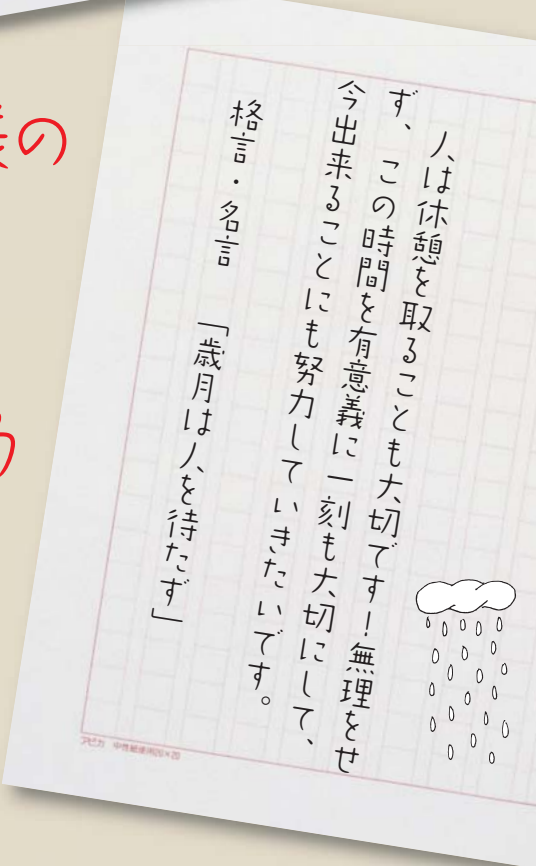 人は休憩を取ることも大切です！無理をせ
ず、この時間を有意義に一刻も大切にして、
今出来ることにも努力していきたいです。
格言・名言　「歳月は人を待たず」
アピカ　中性紙使用20×20
様の